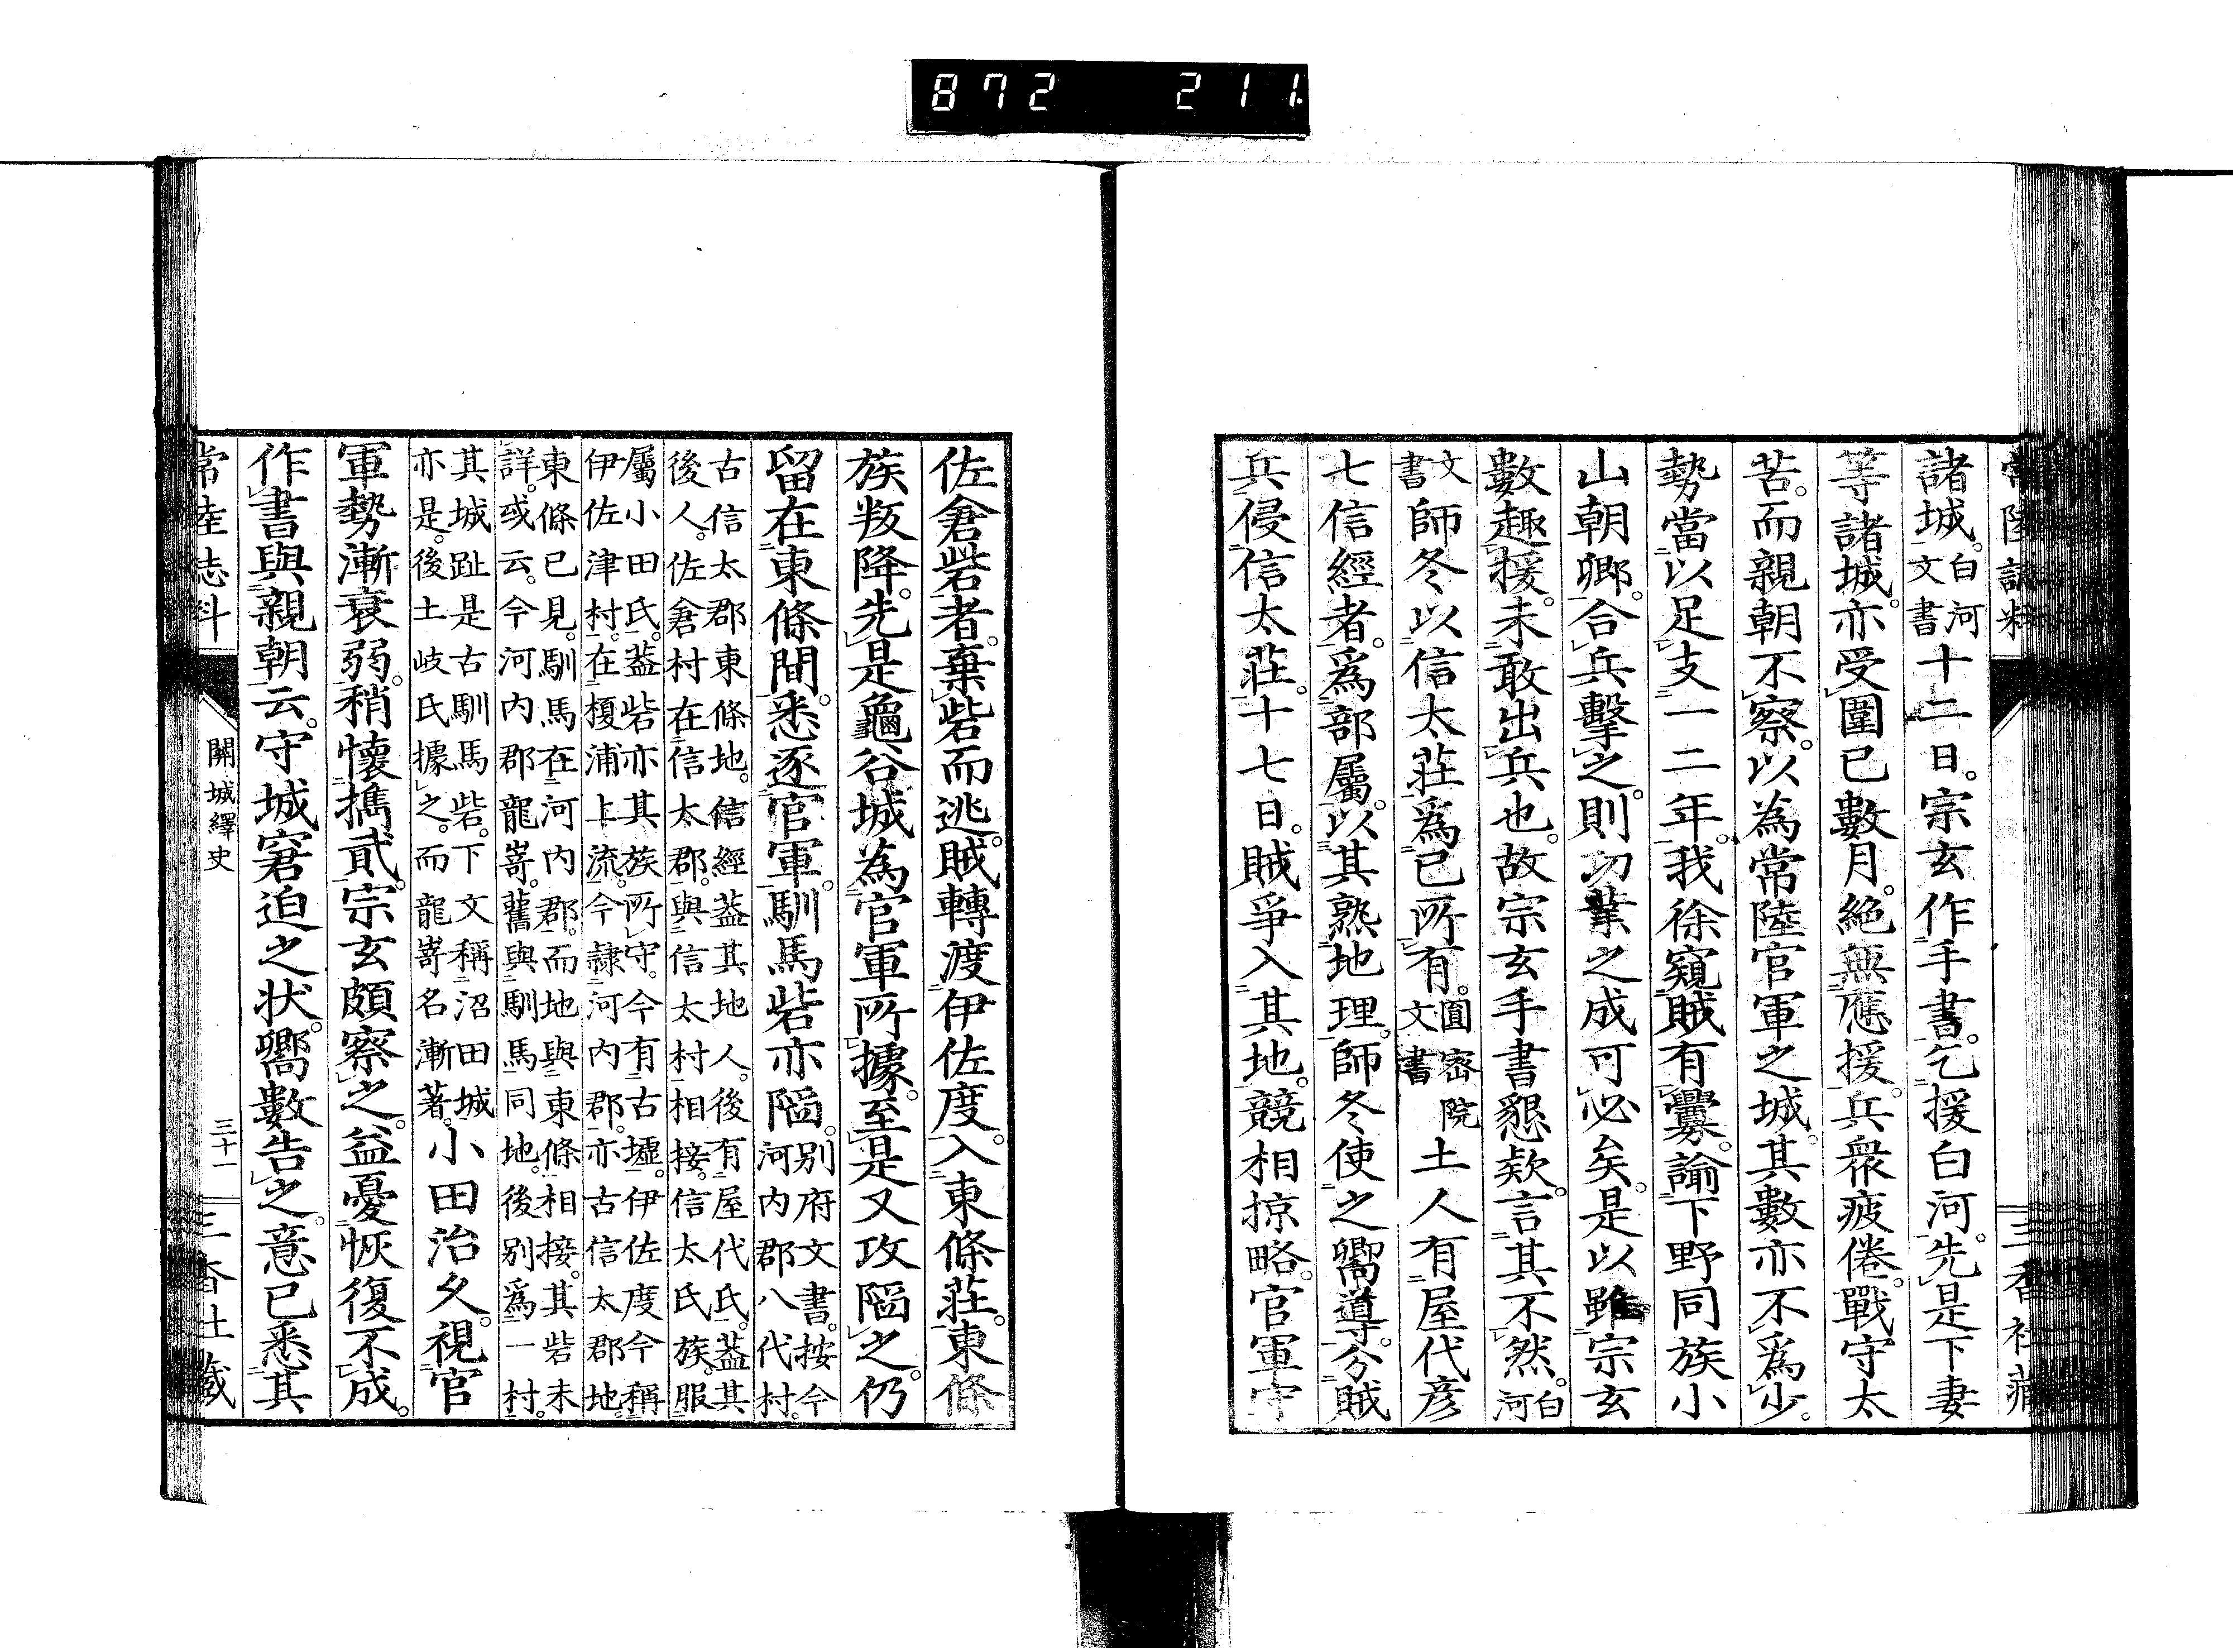 872 211
常陸誌料
三香社藏
諸城。白河文書十二日。宗玄作手書。乞援白河。先是下妻
等諸城。亦受圍已數月。絕無應援。兵衆疲倦。戰守太
苦。而親朝不察。以為常陸官軍之城。其數亦不爲少。
勢當以足支一二年。我徐窺賊有釁。諭下野同族小
山朝鄕。合兵擊之。則功業之成可必矣。是以雖宗玄
數趣援。未敢出兵也。故宗玄手書懇欵。言其不然。白河
文書師冬以信太莊爲已所有。圓密院文書土人有屋代彦
七信經者。爲部屬。以其熟地理。師冬使之嚮導。分賊
兵侵信太莊。十七日。賊爭入其地。競相掠略。官軍守
佐倉砦者。棄砦而逃。賊轉渡伊佐度。入東條莊。東條
族叛降。先是龜谷城為官軍所據。至是又攻陷之。仍
留在東條間。悉逐官軍。馴馬砦亦陷。別府文書。按今河内郡八代村。
古信太郡東條地。信經蓋其地人。後有屋代氏。蓋其
後人。佐倉村在信太郡。與信太村相接。信太氏族。服
屬小田氏。蓋砦亦其族所守。今有古墟。伊佐度今稱
伊佐津村。在榎浦上流。今隷河内郡。亦古信太郡地。
東條已見。馴馬在河内郡。而地與東條相接。其砦未
詳。或云。今河内郡龍嵜。舊與馴馬同地。後別爲一村。
其城趾是古馴馬砦。下文稱沼田城
亦是。後土岐氏據之。而龍嵜名漸著。小田治久。視官
軍勢漸衰弱。稍懷攜貳。宗玄頗察之。益憂恢復不成。
作書與親朝云。守城窘迫之状。嚮數告之。意已悉其
常陸志料
關城繹史
三十一
三香社藏